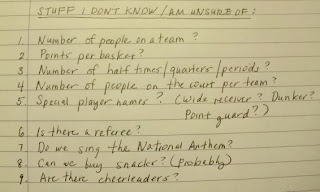 STUFF I DON'T KNOW / AM UNSURE OF:
1. Number of people on a team?
2 Points per basket?
3 Number of half times/quarters/periods?
4 Number of people on the court per team?
5. Special player names? (Wide receiver? Dunker?
Point guard?)
6 Is there a referee?
7 Do we sing the National Anthem?
8. Can we buy snacks? (probably)
9. Are there cheerleaders?